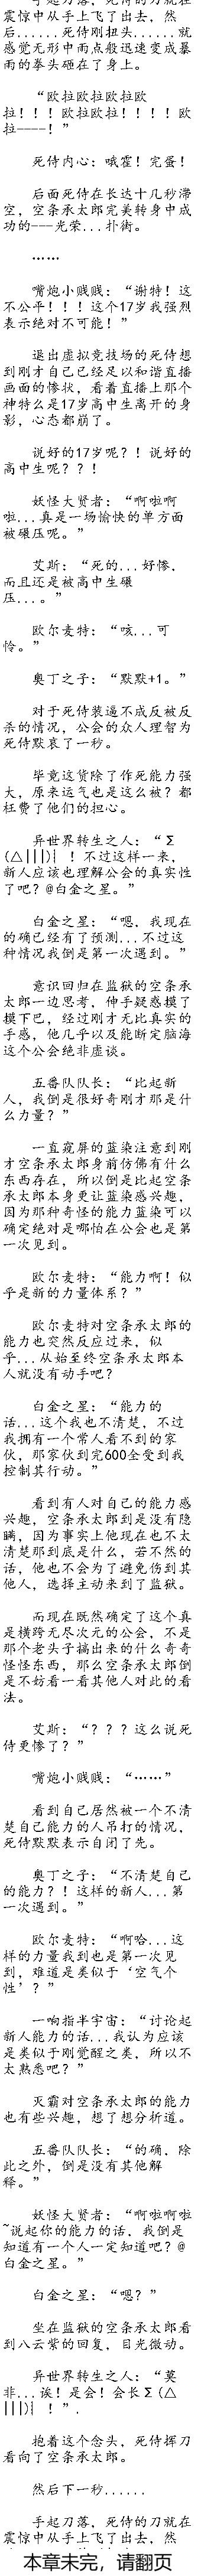 手起刀落，死侍的刀就在
震惊中从手上飞了出去，然
后......死侍刚扭头......就
感觉无形中雨点般迅速变成暴
雨的拳头砸在了身上。
“欧拉欧拉欧拉欧
拉！！！欧拉欧拉！！！！欧
拉----！”
死侍内心：哦霍！完蛋！
后面死侍在长达十几秒滞
空，空条承太郎完美转身中成
功的---光荣...扑街。
……
嘴炮小贱贱：“谢特！这
不公平！！！这个17岁我强烈
表示绝对不可能！”
退出虚拟竞技场的死侍想
到刚才自己已经足以和谐直播
画面的惨状，看着直播上那个
神特么是17岁高中生离开的身
影，心态都崩了。
说好的17岁呢？！说好的
高中生呢？？！
妖怪大贤者：“啊啦啊
啦...真是一场愉快的单方面
被碾压呢。”
艾斯：“死的...好惨，
而且还是被高中生碾
压...。”
欧尔麦特：“咳...可
怜。”
奥丁之子：“默默+1。”
对于死侍装逼不成反被反
杀的情况，公会的众人理智为
死侍默哀了一秒。
毕竟这货除了作死能力强
大，原来运气也是这么被？都
枉费了他们的担心。
异世界转生之人：“Σ
(△|||)︴！不过这样一来，
新人应该也理解公会的真实性
了吧？@白金之星。”
白金之星：“嗯，我现在
的确已经有了预测...不过这
种情况我倒是第一次遇到。”
意识回归在监狱的空条承
太郎一边思考，伸手疑惑摸了
摸下巴，经过刚才无比真实的
手感，他几乎以及能断定脑海
这个公会绝非虚谈。
五番队队长：“比起新
人，我倒是很好奇刚才那是什
么力量？”
一直窥屏的蓝染注意到刚
才空条承太郎身前仿佛有什么
东西存在，所以倒是比起空条
承太郎本身更让蓝染感兴趣，
因为那种奇怪的能力蓝染可以
确定绝对是哪怕在公会也是第
一次见到。
欧尔麦特：“能力啊！似
乎是新的力量体系？”
欧尔麦特对空条承太郎的
能力也突然反应过来，似
乎...从始至终空条承太郎本
人就没有动手吧？
白金之星：“能力的
话...这个我也不清楚，不过
我拥有一个常人看不到的家
伙，那家伙到完600全受到我
控制其行动。”
看到有人对自己的能力感
兴趣，空条承太郎到是没有隐
瞒，因为事实上他现在也不太
清楚那到底是什么，若不然的
话，他也不会为了避免伤到其
他人，选择主动来到了监狱。
而现在既然确定了这个真
是横跨无尽次元的公会，不是
那个老头子搞出来的什么奇奇
怪怪东西，那么空条承太郎倒
是不妨看一看其他人对此的看
法。
艾斯：“？？？这么说死
侍更惨了？”
嘴炮小贱贱：“……”
看到自己居然被一个不清
楚自己能力的人吊打的情况，
死侍默默表示自闭了先。
奥丁之子：“不清楚自己
的能力？！这样的新人...第
一次遇到。”
欧尔麦特：“啊哈...这
样的力量我到也是第一次见
到，难道是类似于‘空气个
性’？”
一响指半宇宙：“讨论起
新人能力的话...我认为应该
是类似于刚觉醒之类，所以不
太熟悉吧？”
灭霸对空条承太郎的能力
也有些兴趣，想了想分析道。
五番队队长：“的确，除
此之外，倒是没有其他解
释。”
妖怪大贤者：“啊啦啊啦
~说起你的能力的话，我倒是
知道有一个人一定知道吧？@
白金之星。”
白金之星：“嗯？”
坐在监狱的空条承太郎看
到八云紫的回复，目光微动。
异世界转生之人：“莫
非...诶！是会！会长Σ(△
|||)︴！”.
抱着这个念头，死侍挥刀
看向了空条承太郎。
然后下一秒......
手起刀落，死侍的刀就在
震惊中从手上飞了出去，然
本章未完，请翻页